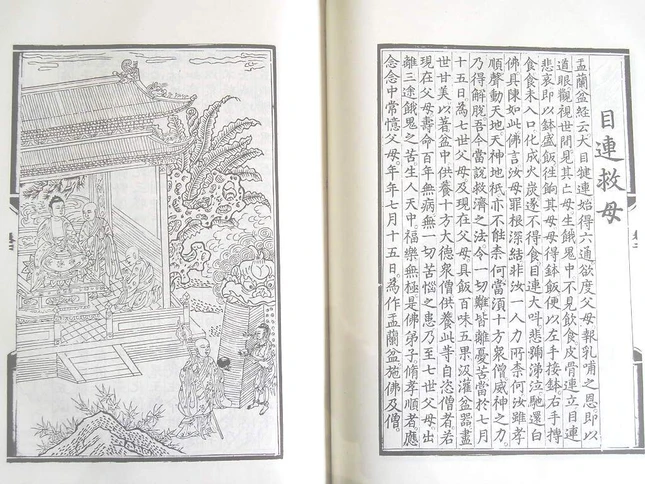 目連救母
盂蘭盆經云大目犍連始得六通欲度父母報乳哺之恩即以
道眼觀視世間見其亡母生餓鬼中不見飲食皮骨連立目連
悲哀即以鉢盛飯往餉其母母得鉢飯便以左手接鉢右手摶
食食未入口化成火炭遂不得食目連大叫悲號涕泣馳還白
佛具陳如此佛言汝母罪根深結非汝一人力所柰何汝雖孝
順聲動天地天神地祇亦不能柰何當須十方衆僧威神之力
乃得解脫吾今當說救濟之法令一切難皆離憂苦當於七月
十五日為七世父母及現在父母具飯百味五果汲灌盆器盡
世甘美以著盆中供養十方大德衆僧供養此等自恣僧者若
現在父母壽命百年無病無一切苦惱之患乃至七世父母出
離三途餓鬼之苦生人天中福樂無極是佛弟子脩孝順者應
念念中常憶父母年年七月十五日為作盂蘭盆施佛及僧。